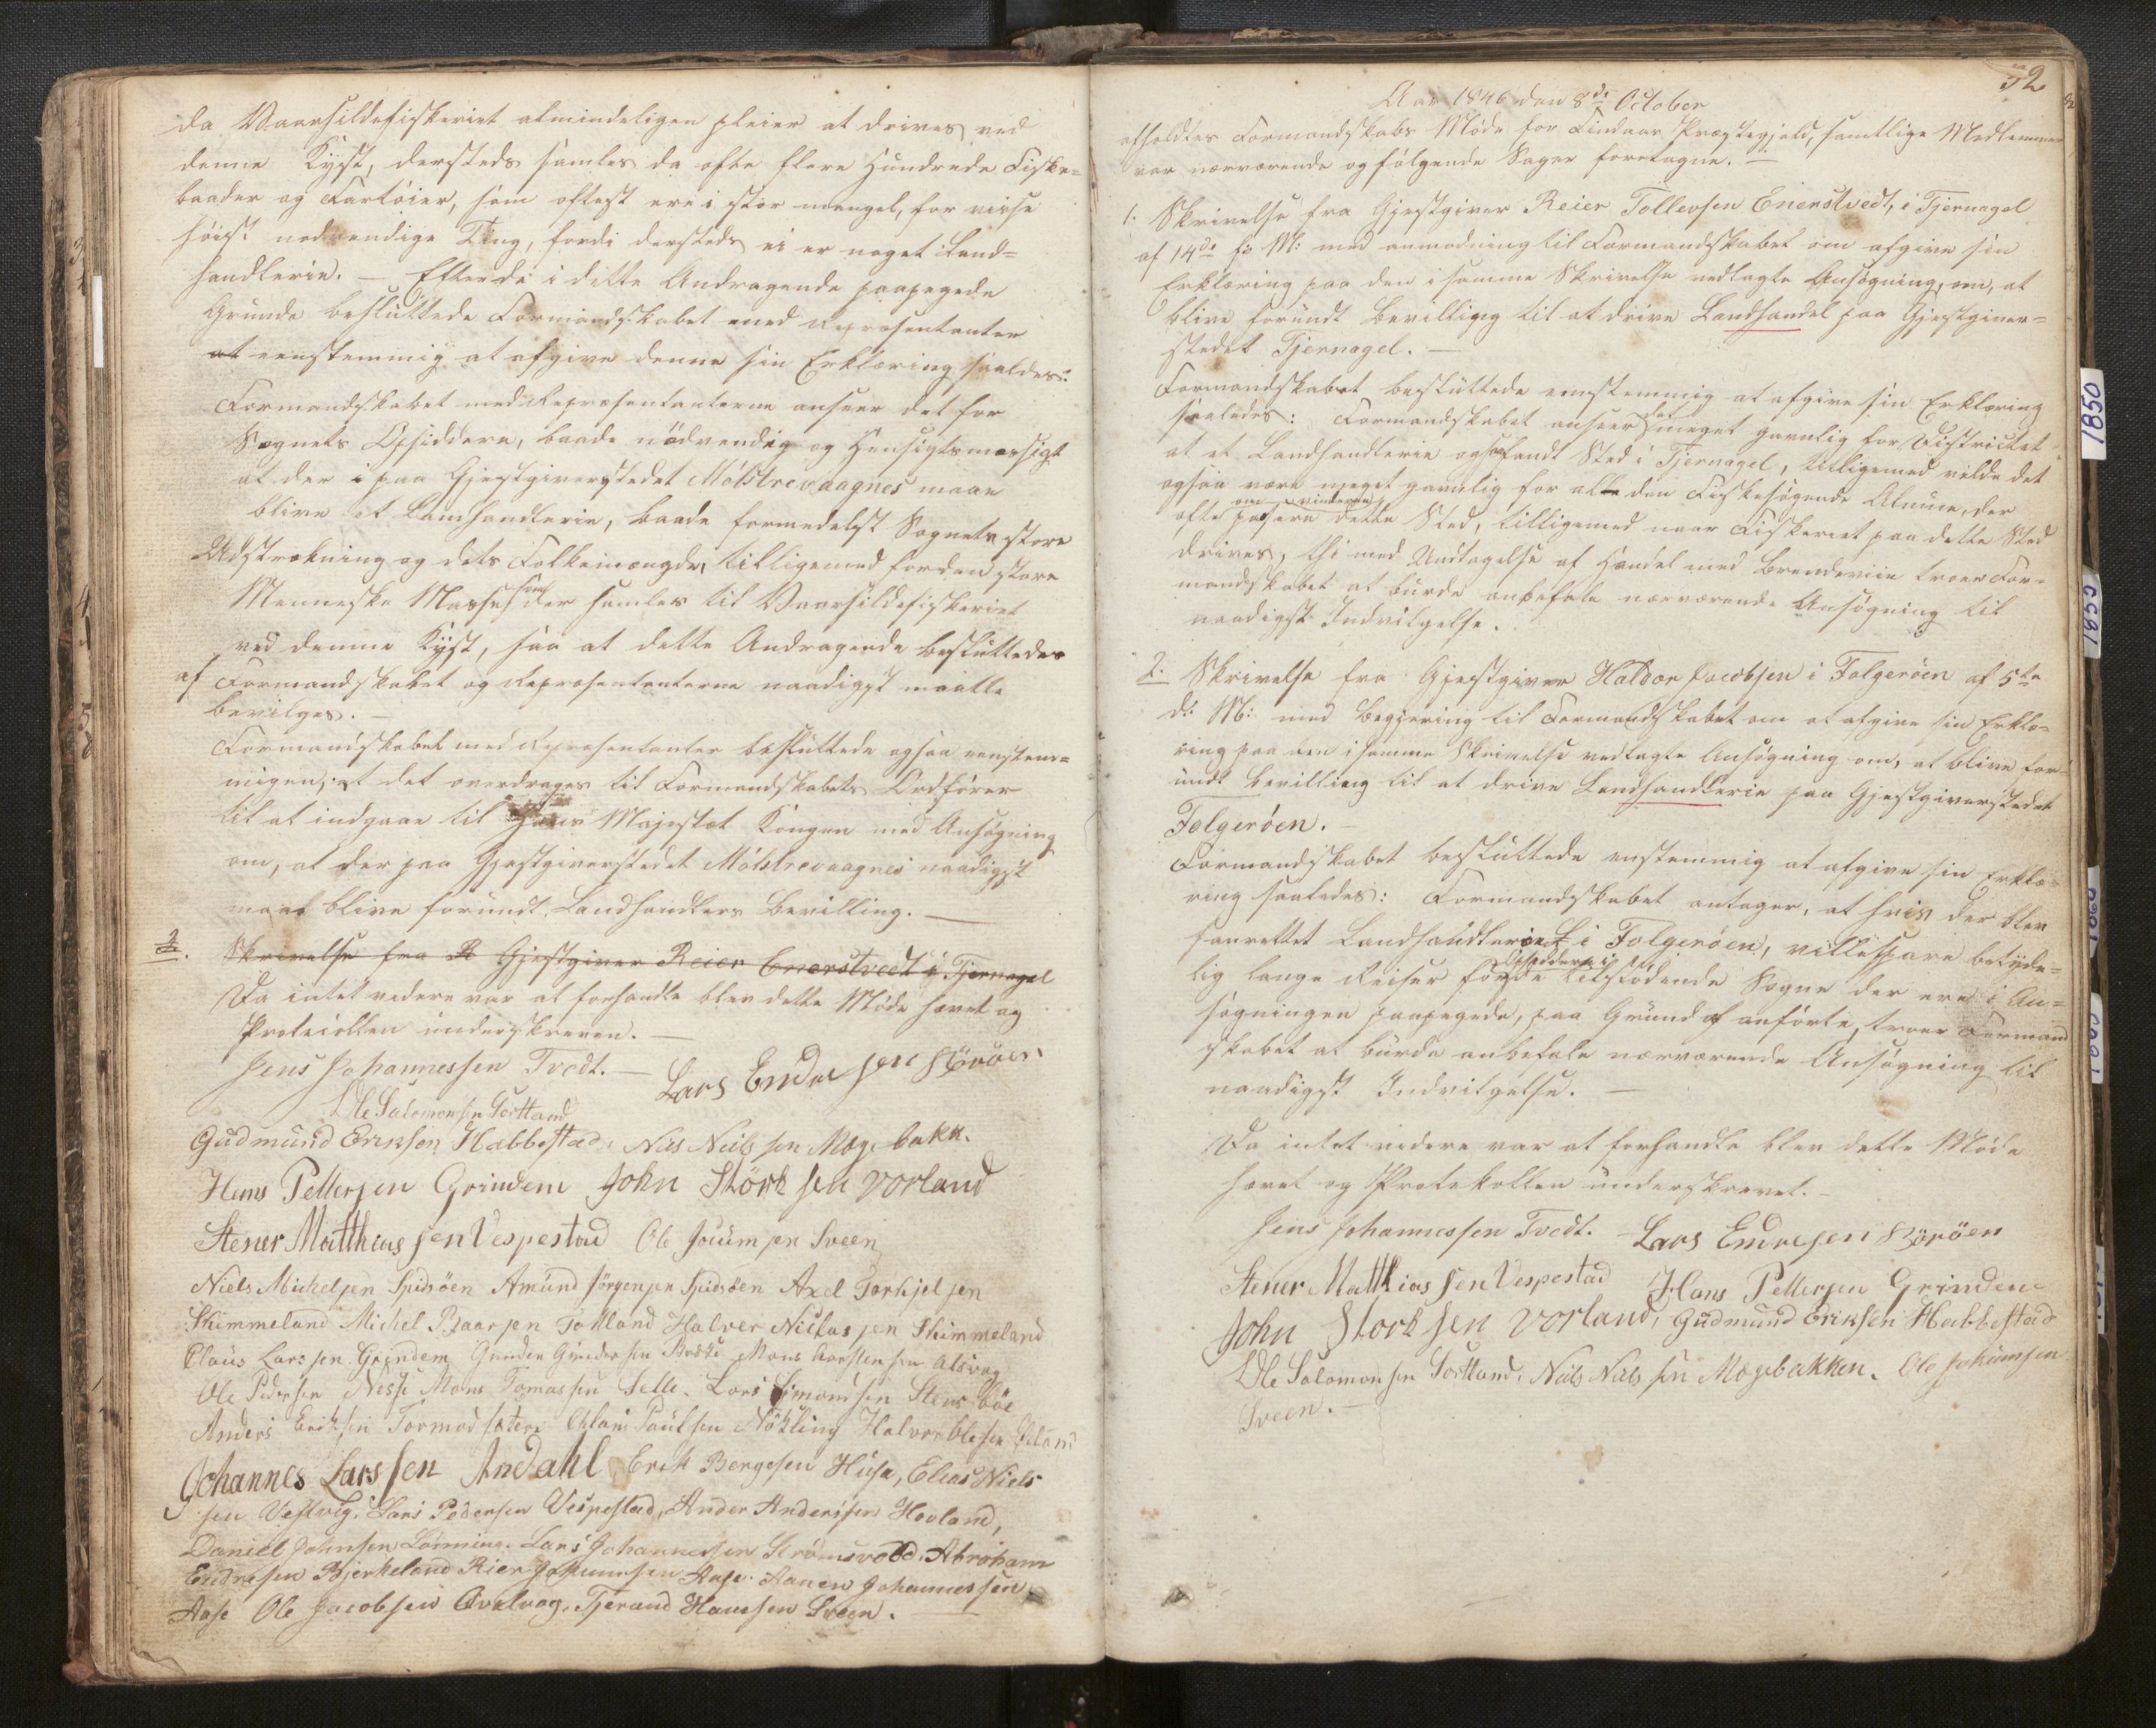 da Vaarsildefiskeriet almindeligen pleier at drives ved
denne Kyst, dersteds samles da ofte flere Hundrede Fiske=
baader og Fartöier, som oftest ere i stor mangel, for visse
höist nødvendige Ting, fordi dersteds ei er noget Land=
handlerie. — Efter de i dette Andragende paapegede
Grunde besluttede Formandskabet med Repræsentanter
at eenstemmig at afgive denne sin Erklæring saaledes:
Formandskabet med Repræsentanterne anseer det for
Sognets Opsiddere, baade nödvendig og Hensigtsmæssigt
at der i paa Gjestgiverstedet Mölstrevaagnes maae
blive et Landhandlerie, baade formedelst Sognets store
Udstrækning og dets Folkemængde, tilligemed for den store
Menneske Masse som der samles til Vaarsildefiskeriet
ved denne Kyst, saa at dette Andragende besluttedes
af Formandskabet og Repræsentanterne naadigst maatte
bevilges. —
Formandskabet med Repræsentanter besluttede ogsaa eenstem=
migen, at det overdrages til Formandskabets Ordförer
til at indgaae til Hans Majestæt Kongen med Ansögning
om, at der paa Gjestgiverstedet Mölstrevaagnes naadigst
maae blive forundt Landhandlers Bevilling. —
2. Skrivelse fra R Gjestgiver Reier Enerstvedt i Tjernagel
Da intet videre var at forhandle blev dette Möde hævet og
Protocollen underskreven. —
Jens Johannessen Tvedt. — Lars Endresen Böröen
Ole Salomonsen Tortland
Gudmund Eriksen Habbestad, Nils Neilssen Mogebakk.
Hans Pettersen Grindem John Störksen Vorland
Stener Matthiassen Vespestad Ole Joeumsen Sveen
Niels Mickelsen Spidsöen Amund Jörgensen Spidsöen Axel Torkjelsen
Skimmeland Mickel Baarsen Totland Halver Niclasen Skimmeland
Claus Larssen Grindem Gunder Gundersen Mons Aorstensen Alsvag
Ole Pedersen Nesse Mons Tomassen Selle. Lars Simonsen Stensböe
Anders Eriksen Tormodsæter Paulsen Nökling Halvor Olesen
Johannes Larssen Andahl Erik Bergesen Husa, Elias Niels
sen Vestvig. Lars Pedersen Vespestad, Ander Andersen Hovland,
Daniel Johnsen Lönning. Lars Johannessen Strömsvold. Abraham
Endresen Bjerkeland Rier Johannesen Aase. Aanen Johannessen
Aase Ole Jacobsen Qvalvag. Tjerand Hansen Sveen.
52
Aar 1846 den 8de October
afholdtes Formandskabs Möde for Findaas Præstegjeld, samtlige Medlemmer
var nærværende og fölgende Sager foretagne. —
1. Skrivelse fra Gjestgiver Reier Tollevsen Enerstvedt, i Tjernagel
af 14de f: M: med anmodning til Formandskabet om afgive sin
Erklæring paa den i samme Skrivelse vedlagte Ansögning, om, at
blive forundt Bevilling til at drive Landhandel paa Gjestgiver=
stedet Tjernagel. —
Formandskabet besluttede eenstemmig at afgive sin Erklæring
saaledes: Formandskabet anseer det meget gavnlig for Districtet
at et Landhandlerie ogsaa fandt Sted i Tjernagel, tilligemed vilde det
ogsaa være meget gavnlig for alle den Fiskesögende Almue, der
om vinteren
ofte passere dette Sted, tilligemed naar Fiskeriet paa dette Sted
drives, thi med Undtagelse af Handel med Brendeviin troer For=
mandskabet at burde anbefale nærværende Ansögning til
naadigst Indvilgelse.
2. Skrivelse fra Gjestgiver Haldor Jacobsen i Folgeröen af 5te
d: M: med Begjering til Formandskabet om at afgive sin Erklæ=
ring paa den i samme Skrivelse vedlagte Ansögning om, at blive for=
undt Bevilling til at drive Landhandlerie paa Gjestgiverstedet
Folgeröen. —
Formandskabet besluttede enstemmig at afgive sin Erklæ=
ring saaledes: Formandskabet antager, at hvis der blev
hanrettet Landhandleriet i Folgeröen, ville spare betyde=
Opsiddere i
lig lange Reiser for de tilstödende Sogne der ere i An=
sögningen paapegede, paa Grund af anförte, troer Formand
skabet at burde anbefale nærværende Ansögning til
naadigst Indvilgelse. —
Da intet videre var at forhandle blev dette Möde
hævet og Protokollen underskrevet. —
Jens Johannessen Tvedt. — Lars Endresen Böröen
Stener Matthiassen Vespestad Hans Pettersen Grindem
John Storksen Vorland, Gudmund Eriksen Habbestad
Ole Salomonsen Tortland, Neils Neilssen Mogebakken. Ole Johumsen
Sveen. —
1850
1855
1860